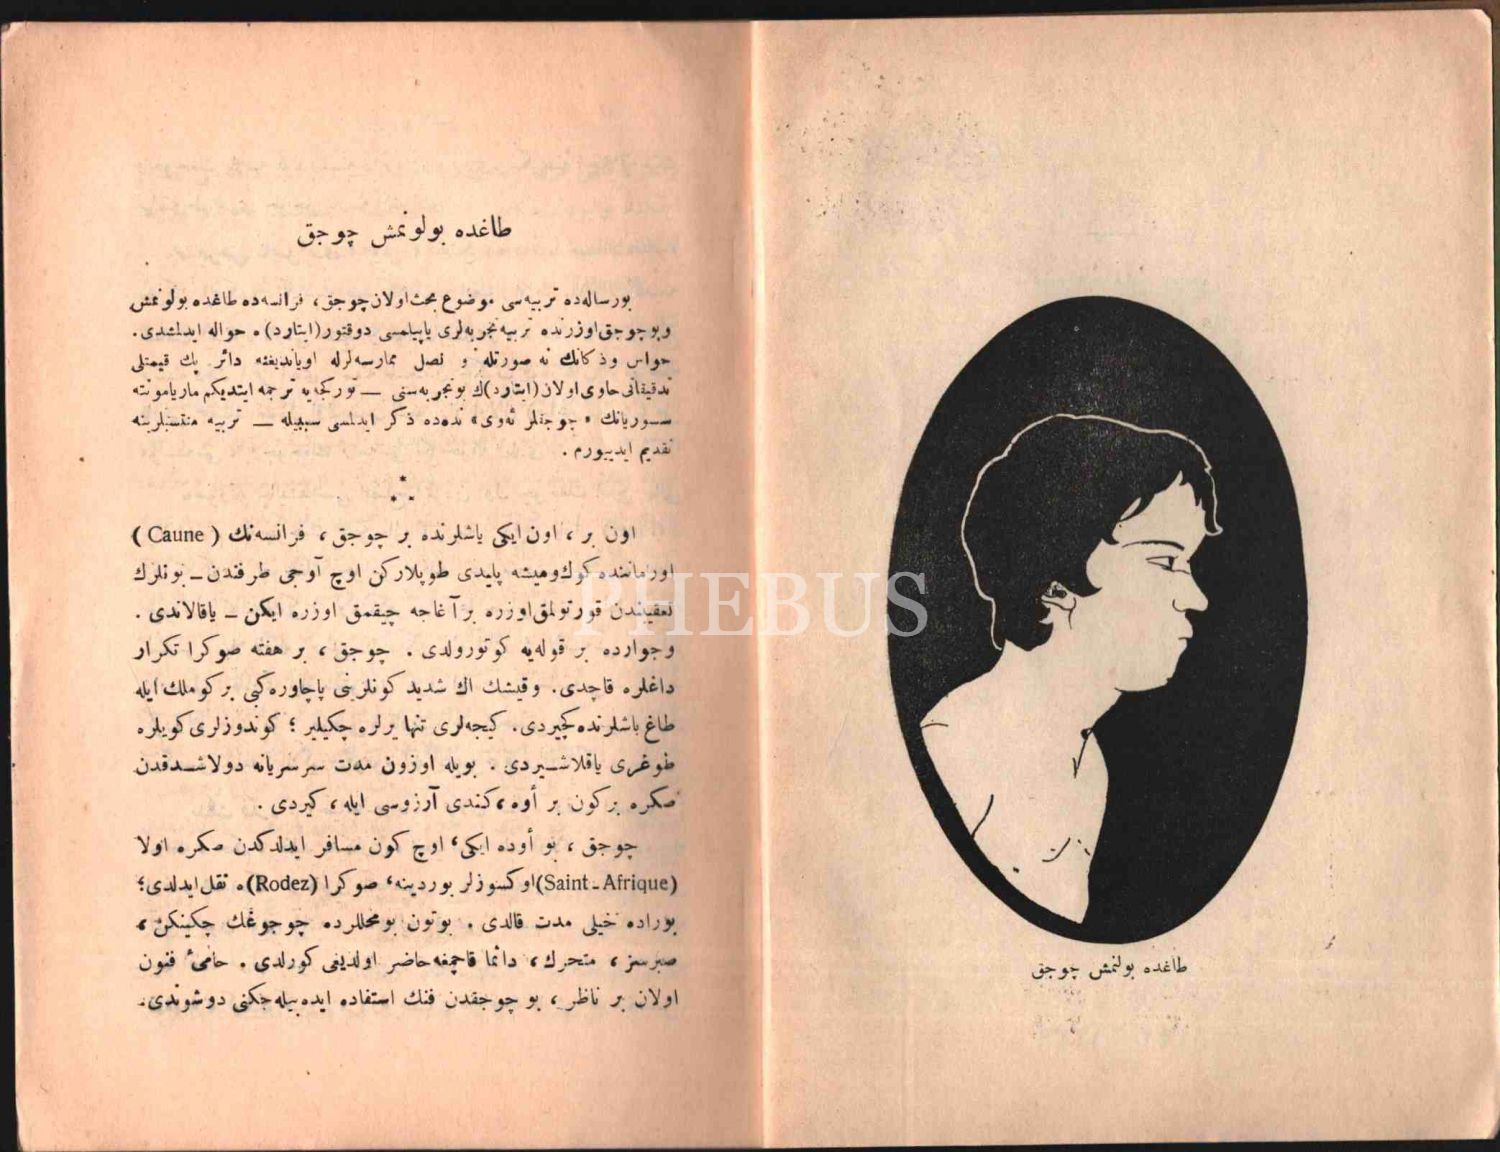 طاغده بولونمش چوجق
بورساله‌ده تربیه‌سی موضوع بحث اولان چوجق، فرانسه‌ده طاغده بولونمش
وبو چوجق اوزرنده تربیه تجربه‌لری یاپیلمسی دوقتور (ایتارد) ه حواله ایدلمشدی.
حواس وذکانك نه صورتله و نصل ممارسه‌لرله اویاندیغنه دائر پك قیمتلی
تدقیقاتی حاوی اولان (ایتارد)ك بوتجربه‌سنی — تورکجه‌یه ترجمه ایتدیکم ماریامونته
سسوریانك « چوجقلر ئه‌وی » نده‌ده ذکر ایدلمسی سببیله — تربیه منتسبلرینه
تقدیم ایدییورم .
* * *
اون بر ، اون ایکی یاشلرنده بر چوجق ، فرانسه‌نك ( Caune )
اورماننده کوك ومیشه پلیدی طوپلارکن اوچ آوجی طرفندن ـ بونلرك
تعقیبندن قورتولمق اوزره بر آغاجه چیقمق اوزره ایکن ـ یاقالاندی .
وجوارده بر قوله‌یه کوتورولدی . چوجق ، بر هفته صوکرا تکرار
داغلره قاچدی. وقیشك اك شدید کونلرینی پاچاوره کبی بر کوملك ایله
طاغ باشلرنده کچیردی. کیجه‌لری تنها یرلره چکیلیر ؛ کوندوزلری کویلره
طوغری یاقلاشیردی . بویله اوزون مدت سرسریانه دولاشدقدن
صکره برکون بر أوه ، کندی آرزوسی ایله ، کیردی .
چوجق ، بو أوده ایکی ، اوچ کون مسافر ایدلدکدن صکره اولا
(Saint-Afrique) اوکسوزلر یوردینه ، صوکرا (Rodez) ه نقل ایدلدی ؛
بوراده خیلی مدت قالدی . بوتون بومحللرده چوجوغك چکینکن ،
صبرسز ، متحرك ، دائما قاچمغه حاضر اولدیغی کورلدی . حامیٔ فنون
اولان بر ناظر ، بو چوجقدن فنك استفاده ایده‌بیله‌جکنی دوشوندی.
طاغده بولنمش چوجق
PHEBUS